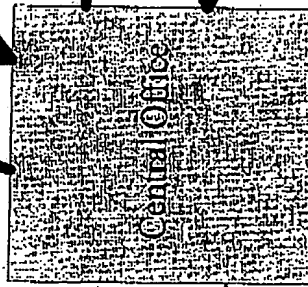 Central Office